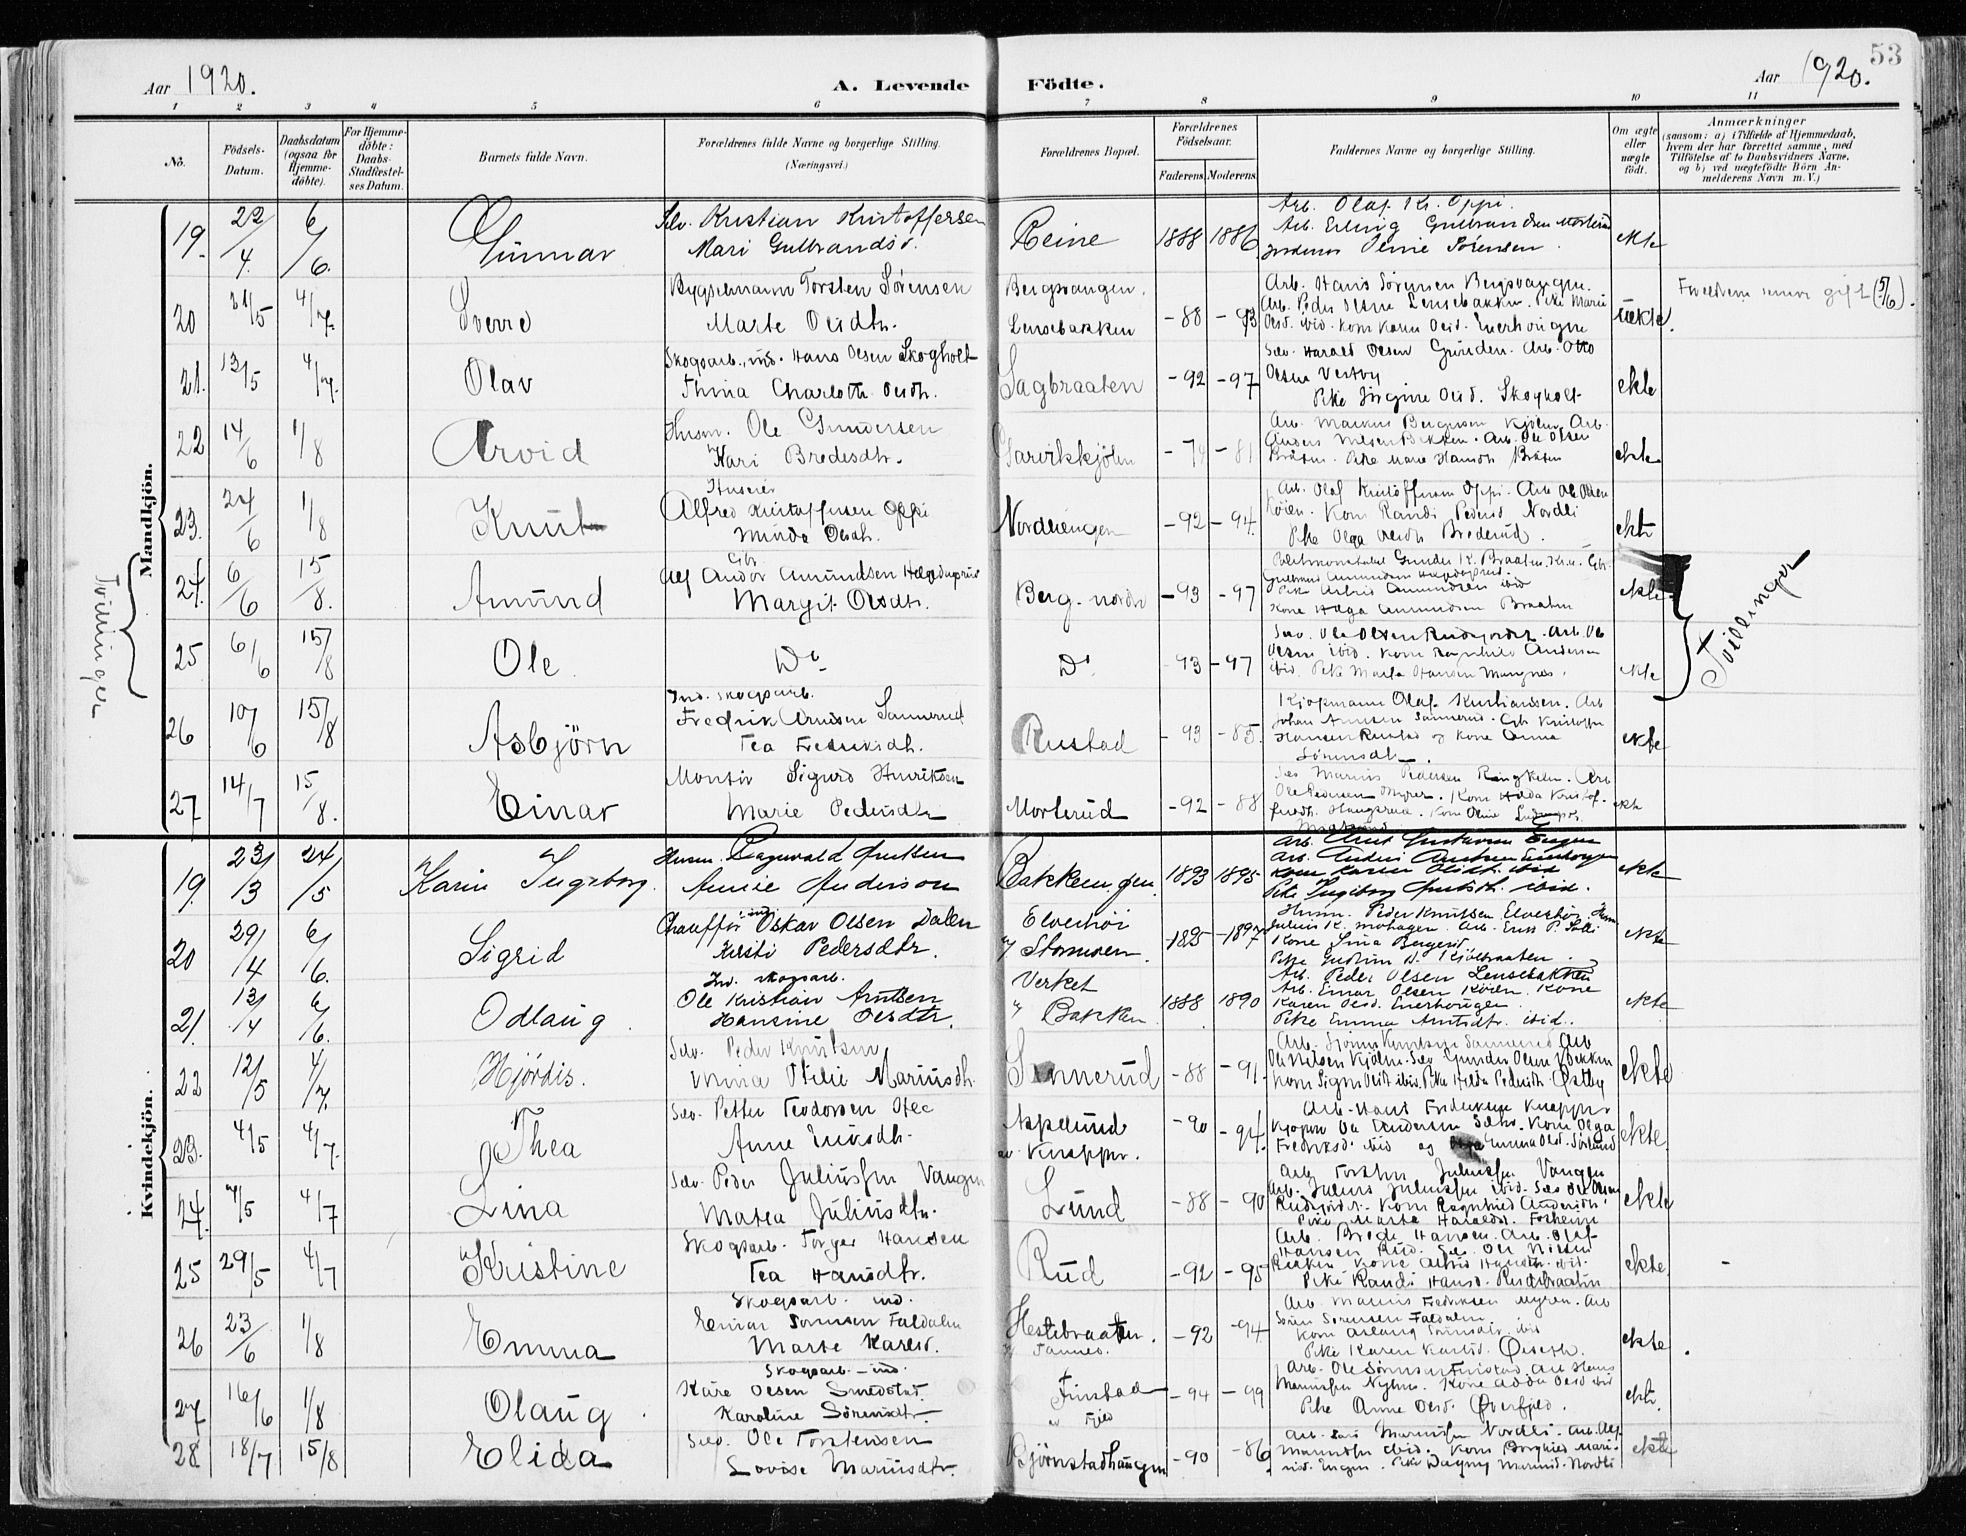 53
Aar 1920.
A. Levende Födte.
Aar 1920.
1 2 3 4 5 6 7 8 9 10 11
No.
Födsels-Datum.
Daabsdatum (ogsaa for Hjemme-döbte).
For Hjemme-döbte: Daabs-Stadfæstel-ses Datum.
Barnets fulde Navn.
Forældrenes fulde Navne og borgerlige Stilling. (Næringsvei.)
Forældrenes Bopæl.
Forældrenes Födselsaar.
Faderens. Moderens.
Faddernes Navne og borgerlige Stilling.
Om ægte eller uægte födt.
Anmærkninger
(saasom: a) i Tilfælde af Hjemmedaab, hvem der har forrettet samme, med Tilföielse af to Daabsvidners Navne, og b) ved uægtefödte Börn An-melderens Navn m. V.)
Mandkjön.
19. 22/4. 6/6. Gunnar
Selv. Kristian Kristoffersen
Mari Gulbrandsd.
Reine 1888 1886
Arb. Olaf Kr. Oppi.
Arb. Erling Gulbrandsen Morterud
Oline Sörensen.
ekte
20 31/5 4/7. Sverre
Bygselmann Torsten Sørensen
Marte Olsdtr.
Bergsvangen.
Lensebakken
-88 -93
Arb. Hans Sörensen Bergsvangen.
Arb. Peder Olsen Lensebakken. Pike Marie
Olsd. ibid. Kone Karen Olsd. Enerhougen
uekte.
Foreldrene senere gift (5/6).
21. 13/5 4/7. Olav
Skogsarb., ind. Hans Olsen Skogholt
Thina Charlotte Olsdtr.
Sagbraaten -92 -97
Selv. Harald Olsen Grinden. Arb. Otto
Olsen Vestby
Pike Jörgine Olsd. Skogholt
ekte
22 14/6 1/8 Arvid
Husm. Ole Gundersen
Kari Bredesdtr.
Garvikkjölen -79 -81
Arb. Markus Bergersen Kjölen. Arb.
Anders Nilsen Bekken. Arb. Ole Olsen
Bråten. Pike Marie Hansdtr Bråten
ekte
23. 24/6 1/8 Knut
Huseier
Alfred Kristoffersen Oppi
Minda Olsdtr.
Nordliengen -92 -94.
Arb. Olaf Kristoffersen Oppi. Arb. Ole Olsen
Köien. Kone Randi Pedersd Nordli
Pike Olga Olsdtr Brederud.
ekte
24. 6/6 15/8. Amund
Gbr.
Alf Andor Amundsen Helgedagsrud
Margit Olsdtr.
Berg. nordre -93 -97
Politikonstabel Gunder K. Braaten. Kr.a. Gbr.
Gulbrand Amundsen Helgedagsrud.
Pike Astrid Amundsen ibid
Kone Helga Amundsen Braaten
ekte
25 6/6 15/8 Ole
Do
Do. -93 -97
Selv. Ole Olsen Rudsjordet. Arb. Ole
Olsen ibid. Kone Ragnhild Andersen
ibid. Pike Marta Hansen Mangnes.
ekte
Tvillinger
Tvillinger
26 10/6 15/8 Asbjörn
Ind. skogsarb.
Fredrik Arnesen Sannerud
Tea Fredriksdtr.
Rustad -93 -85.
Kjöpmann Olaf Kristiansen. Arb
Johan Arnesen Sannerud. Gbr Kristoffer
Hansen Rustad og Kone Anna
Sörensdtr.
ekte
27 14/7 15/8. Einar
Montör Sigurd Henriksen
Marie Pedersdtr
Morterud -92 -88
Selv Marius Pedersen Ringkelen. Arb
Ole Pedersen Myrer. Kone Hilda Kristof-
fersdtr. Haugsrud. Kone Oline Ludvigsd.
Morterud
ekte
Kvindekjön.
19. 23/3 24/5 Karin Ingeborg.
Husm. Ragnvald Knutsen
Annie Anderson
Bakkengen 1893 1895
Arb. Knut Gustavsen Engen
Arb. Anders Andersen Enerhougen
Kone Karen Olsdtr. ibid
Pike Ingeborg Knutsdtr. ibid.
ekte
20 29/4 6/6. Sigrid
Chauffør ind. Oskar Olsen Dalen
Kirsti Pedersdtr.
Elverhöi
u/ Stommen 1895 -1897
Husm. Peder Knutsen Elverhöi. Husm
Julius K. Mohagen. Arb. Enes P. Sætli
Kone Lina Bergersd.
Pike Gudrun N. Kjölbraaten.
ekte
21. 13/4 6/6. Odlaug.
Ind. skogsarb.
Ole Kristian Knutsen
Hansine Olsdtr.
Verket
u/ Bakken 1888 1890
Arb. Peder Olsen Lensebakken
Arb. Einar Olsen Köien. Kone
Karen Olsd. Enerhougen
Pike Emma Knutsdtr. ibid.
ekte
22 12/5 4/7. Hjördis.
Selv. Peder Knutsen
Mina Otilie Mariusdtr.
Sannerud -88 -91.
Ole Nilsen Kjölen. Selv Gunder Olsen Bekken
Kone Signe Olsdtr ibid. Pike Hilda Pedersdtr. Östby
ekte
23. 4/5 4/7. Thea
Selv. Petter Teodorsen
Anne Eriksdtr.
Aspelund
av Knapper. -90 -94.
Arb. Hans Fredriksen Knapper
Kjöpm Ole Andersen Sæter. Kone Olga
Fredriksd ibid og Emma Olsd. Sörlund
ekte.
24. 7/5 4/7 Lina
Selv. Peder Juliussen Vangen
Matea Juliusdtr.
Lund -88 -90
Arb Torsten Juliussen Vangen
Arb. Julius Juliussen ibid. Selv Ole Olsen
Rudsjordet. Kone Ragnhild Andersdtr
Pike Marta Haraldsd. Furheim
ekte
25 29/5 4/7 Kristine
Skogsarb. Torger Hansen
Tea Hansdtr.
Rud -92 -95
Arb. Brede Hansen. Arb. Olaf
Hansen Rud. Selv. Ole Nilsen
Bekken. Kone Astrid Hansdtr. ibid.
Pike Randi Hansd. Rudsbraaten
ekte
26 23/6 1/8 Emma
Skogsarb. ind.
Einar Sörensen Faldalen
Marte Karlsd.
Hestebraaten.
u/ Tannes. -92 -94
Arb. Marius Fredriksen Myren. Arb
Sören Sörensen Faldalen.
Kone Aslaug Sörensdtr ibid
Pike Karen Karlsd. Öiseth.
ekte.
27 16/6 1/8 Olaug.
Skogsarb - ind.
Kåre Olsen Smedstad
Karoline Sörensdtr.
Finstad
av Fjeld -94 -99
Arb. Ole Sörensen Finstad. Arb Hans
Mariussen Nyhus. Kone Adda Olsd ibid
Pike Anne Olsd. Överfjeld.
ekte.
28 18/7 15/8 Elida
Selv. Ole Torstensen
Lovise Mariusdtr.
Björnstadhaugen -90 -86
Arb. Lars Mariussen Nordli. Arb. Alf
Mariussen ibid. Kone Borghild Mari-
usd. Engen. Pike Dagny Mariusd. Nordli
ekte